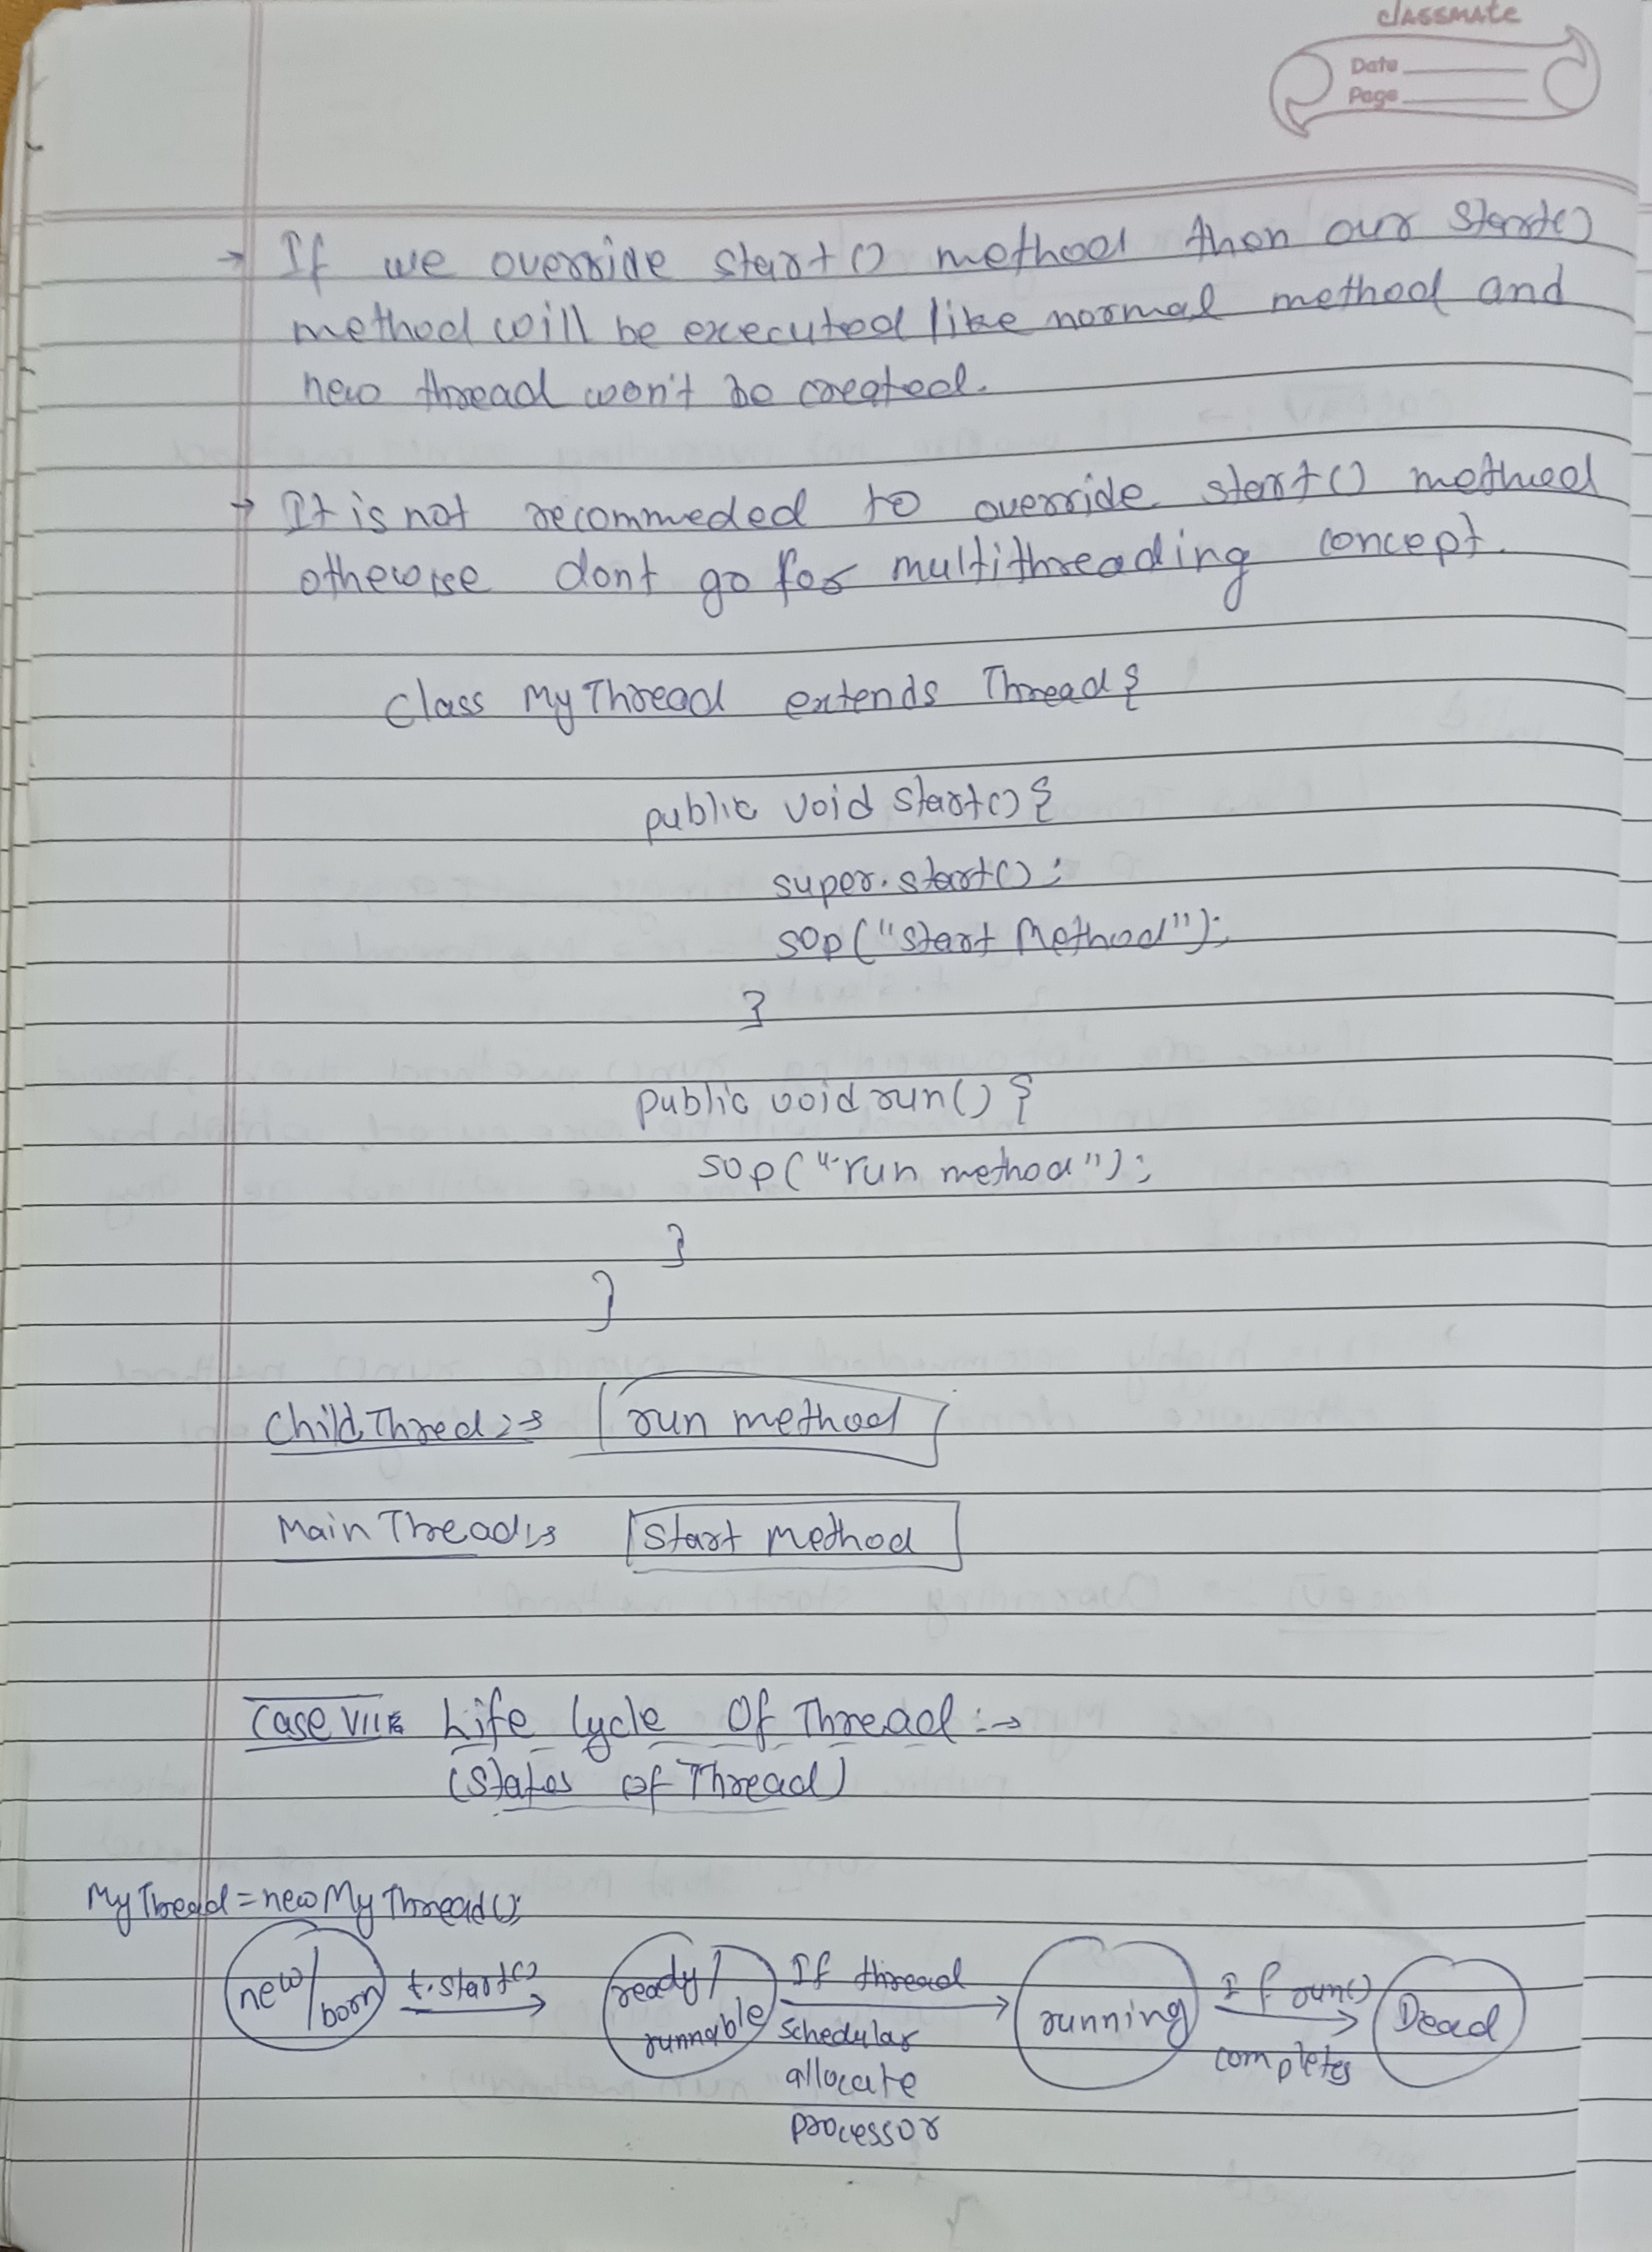 classmate
Date
Page
→ If we override start() method then our start()
method will be executed like normal method and
new thread won't be created.
→ It is not recommeded to override start() method
othewise dont go for multithreading concept.
class MyThread extends Thread{
public void start(){
super.start();
sop("start Method");
}
public void run() {
sop("run method");
}
}
Child Thred :→ run method
Main Thread :→ Start Method
Case VII :→ Life Cycle Of Thread :→
(States of Thread)
MyThread = new MyThread();
new/born t.start() → ready/runnable If thread schedular allocate processor → running If run() completes → Dead